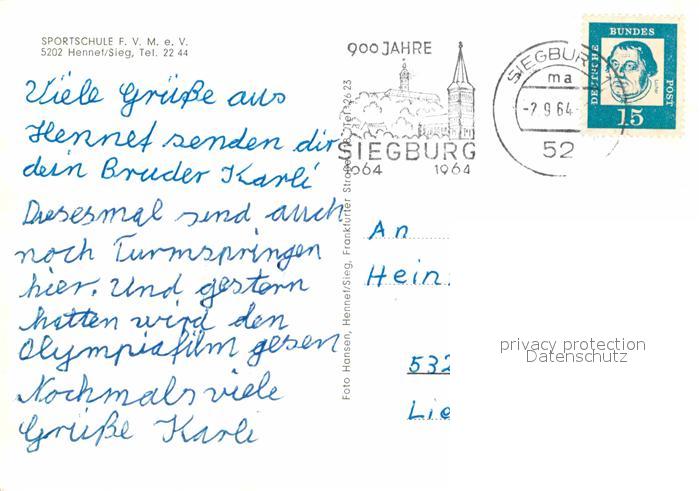 SPORTSCHULE F. V. M. e. V.
5202 Hennef/Sieg, Tel. 22 44
Viele Grüße aus
Hennef senden dir
dein Bruder Karli
Diesesmal sind auch
noch Turmspringen
hier. Und gestern
hatten wird den
Olympiafilm gesen
Nochmals viele
Grüße Karli
Foto Hansen, Hennef/Sieg, Frankfurter
900 JAHRE
SIEGBURG
1064 1964
SIEGBURG
ma
-2.9.64-
52
DEUTSCHE
BUNDES
POST
15
An
Hein
532
Lie
privacy protection
Datenschutz